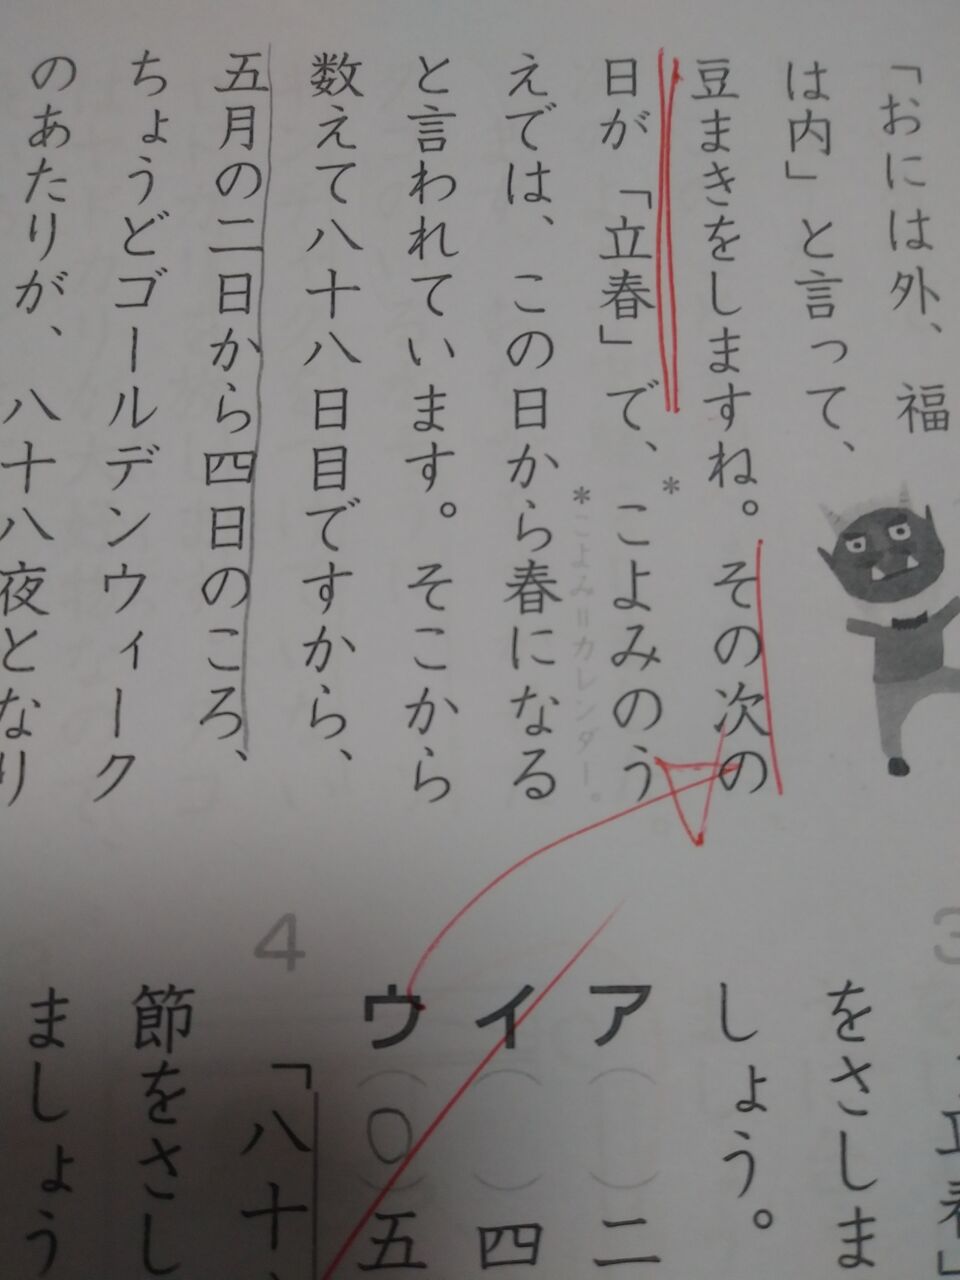 「おには外、福
は内」と言って、
豆まきをしますね。その次の
日が「立春」で、*こよみのう
*こよみ=カレンダー。
えでは、この日から春になる
と言われています。そこから
数えて八十八日目ですから、
五月の二日から四日のころ、
ちょうどゴールデンウィーク
のあたりが、八十八夜となり
3
立春」
をさしま
しょう。
ア( )二
イ( )四
ウ(○)五
4
「八十
節をさし
ましょう